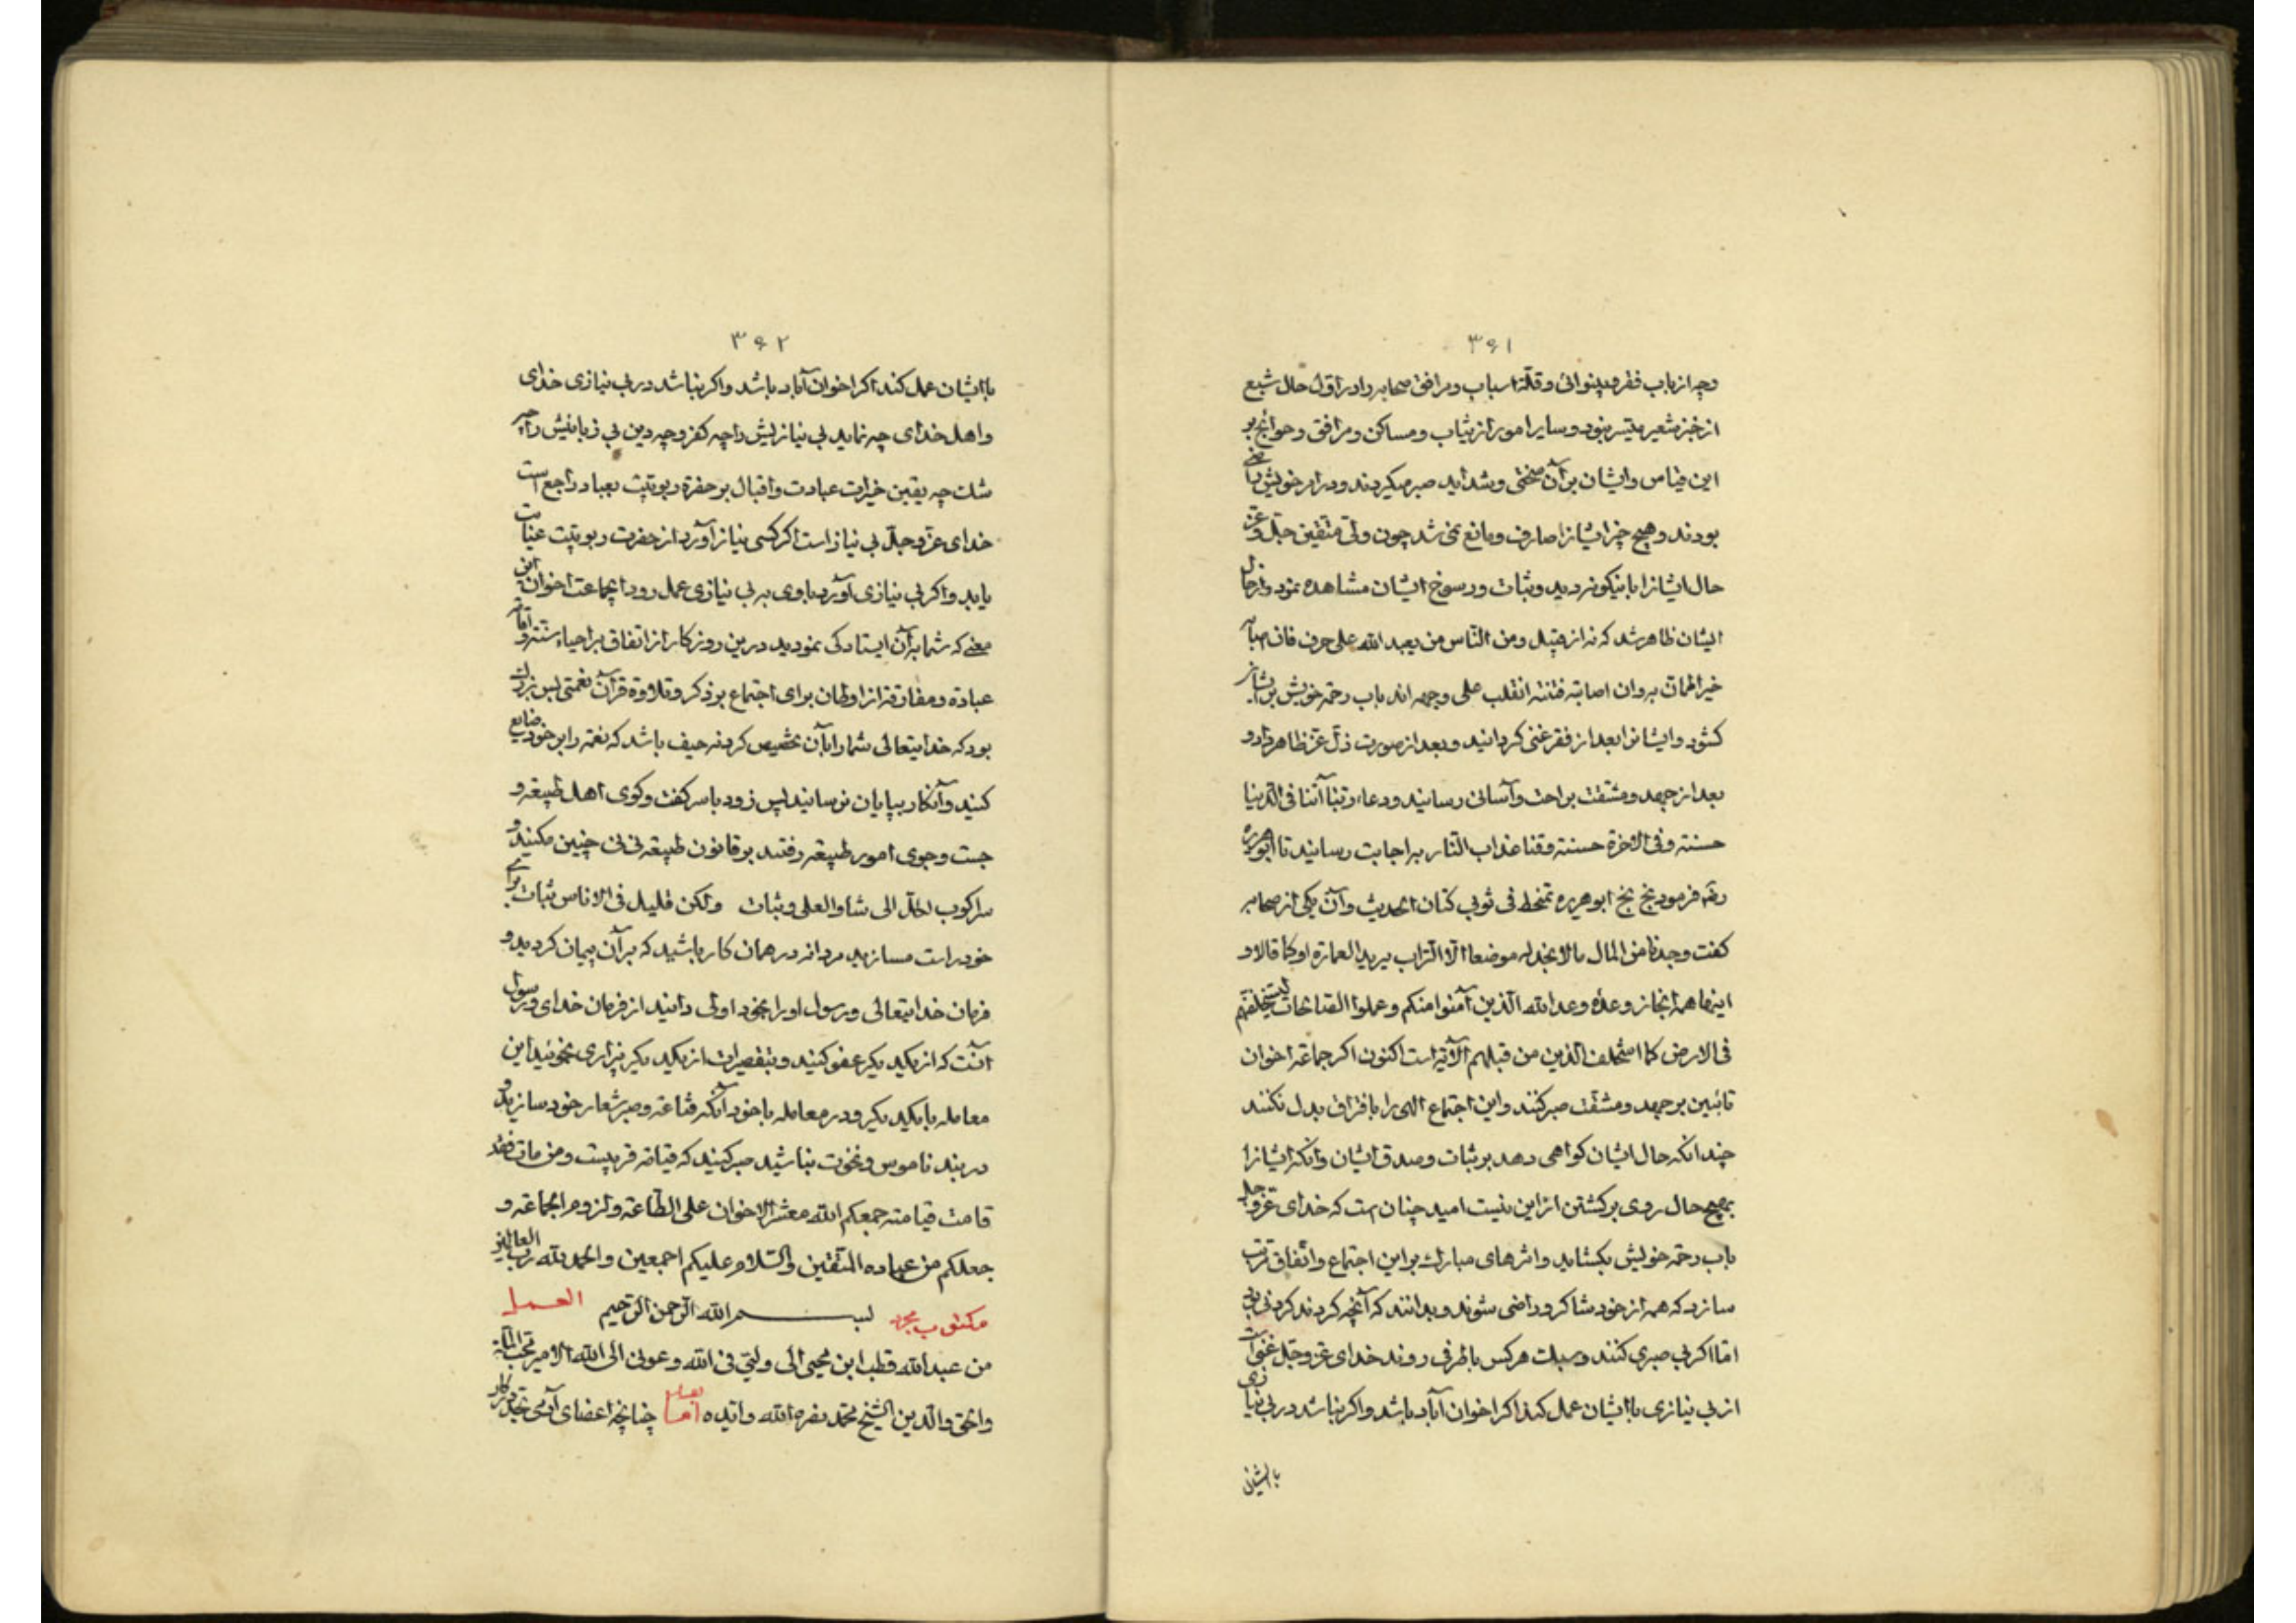 ۳۶۱
وچه از باب فقر و بینوائی و قلّة اسباب و مرافق صحابه را در اوّل حال شبع
از خبز شعیر میّسر نبود و سایر امور از ثیاب و مساکن و مرافق و حوائج بر
این قیاس و ایشان بر آن سختی و شداید صبر میکردند و در امر خویش راسخ
بودند و هیچ چیز ایشانرا صارف و مانع نمی شد چون ولیّ متّقین جلّ و عزّ
حال ایشانرا باینکونه دید و ثبات و رسوخ ایشان مشاهده نمود و از حال
ایشان ظاهر شد که نه از قبیل و من النّاس من یعبد الله علی حرف فان اصابه
خیر اطمانّ به و ان اصابته فتنة انقلب علی وجهه اند باب رحمة خویش بر ایشان
کشود و ایشانرا بعد از فقر غنی کردانید و بعد از صورت ذلّ عزّ ظاهر داد و
بعد از جهد و مشقت براحت و آسانی رسانید و دعاء ربّنا آتنا فی الدّنیا
حسنة و فی الاخرة حسنة و قنا عذاب النّار به اجابت رسانید تا ابوهریره
رضه فرمود بخ بخ ابوهریره تمخط فی ثوبی کتان الحدیث و آن یکی از صحابه
کفت وجدنا من المال ما لا نجد له موضعا الّا التّراب یرید العمارة او کما قالا و
اینها همه انجاز وعدهٔ وعد الله الّذین آمنوا منکم و عملوا الصّالحات لیستخلفنّهم
فی الارض کما استخلف الّذین من قبلهم الآیة است اکنون اکر جماعة اخوان
تائبین بر جهد و مشقّت صبر کنند و این اجتماع الهی را بافتراق بدل نکنند
چندانکه حال ایشان کواهی دهد بر ثبات و صدق ایشان و آنکه ایشانرا
بهیچ حال روی برکشتن از این نیست امید چنان است که خدای عزّ و جلّ
باب رحمة خویش بکشاید و اثرهای مبارک بر این اجتماع و اتّفاق مترتب
سازد که همه از خود شاکر و راضی شوند و بدانند که آنچه کردند کردنی بود
امّا اکر بی صبری کنند و سبلت هرکس باطرفی روند خدای عزّ و جلّ غنی است
از بی نیازی با ایشان عمل کند اکر اخوان آباد باشد و اکر نباشد در بی نیازی
با ایشان
۳۶۲
با ایشان عمل کند اکر اخوان آباد باشد و اکر نباشد در بی نیازی خدای
و اهل خدای چه نماید بی نیازیش را چه کفر و چه دین بی زبانیش را چه
شک چه یقین خیرات عبادت و اقبال بر حضرة ربوبیّت بعباد راجع است
خدای عزّ و جلّ بی نیاز است اکر کسی نیاز آورد از حضرت ربوبیّت عنایت
یابد و اکر بی نیازی آورد با وی به بی نیازی عمل رود ایجماعت اخوان این
معنی که شما بر آن ایستادکی نمودید درین روزکار از اتفاق بر احیاء سنّة و اقامة
عبادة و مفارقة از اوطان برای اجتماع بر ذکر و تلاوة قرآن نعمتی بس بزرک
بود که خدایتعالی شما را بآن تخصیص کرد نه حیف باشد که نعمة را بر خود ضایع
کنید و آنکار بپایان نرسانید پس زود باسر کفت وکوی اهل طبیعة و
جست وجوی امور طبیعة رفتند بر قانون طبیعة نی نی چنین مکنید و
ولکن قلیل فی الاناس ثبات برای
خود راست مسازید مردانه در همان کار باشید که بر آن پیمان کردید و
فرمان خدایتعالی و رسول او را بخود اولی دانید از فرمان خدای و رسول
آنست که از یکدیکر عفو کنید و بتقصیرات از یکدیکر بیزاری نجوئید این
معامله با یکدیکر و در معامله با خود آنکه قناعة و صبر شعار خود سازید و
در بند ناموس و نخوت نباشید صبر کنید که قیامة قریبست و من مات فقد
قامت قیامته جمعکم الله معشر الاخوان علی الطّاعة و لزوم الجماعة و
جعلکم من عباده المتّقین و السّلام علیکم اجمعین و الحمد لله ربّ العالمین
مکتوب بسم الله الرّحمن الرّحیم العمل
من عبد الله قطب ابن محیی الی ولیّی فی الله و عونی الی الله الامیر محبّ الملّة
و الحقّ و الدّین الشّیخ محمّد نصره الله و ایّده امّا بعد چنانچه اعضای آدمی